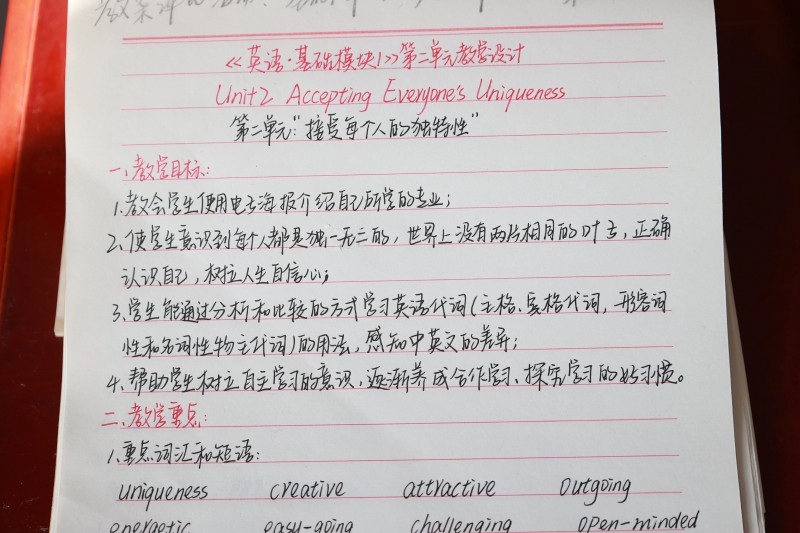 《英语·基础模块1》第二单元教学设计
Unit2 Accepting Everyone's Uniqueness
第二单元"接受每个人的独特性"
一、教学目标:
1、教会学生使用电子海报介绍自己所学的专业;
2、使学生意识到每个人都是独一无二的,世界上没有两片相同的叶子,正确
认识自己,树立人生自信心;
3、学生能通过分析和比较的方式学习英语代词(主格、宾格代词,形容词
性和名词性物主代词)的用法,感知中英文的差异;
4、帮助学生树立自主学习的意识,逐渐养成合作学习、探究学习的好习惯。
二、教学重点:
1、重点词汇和短语:
uniqueness creative attractive outgoing
energetic easy-going challenging open-minded